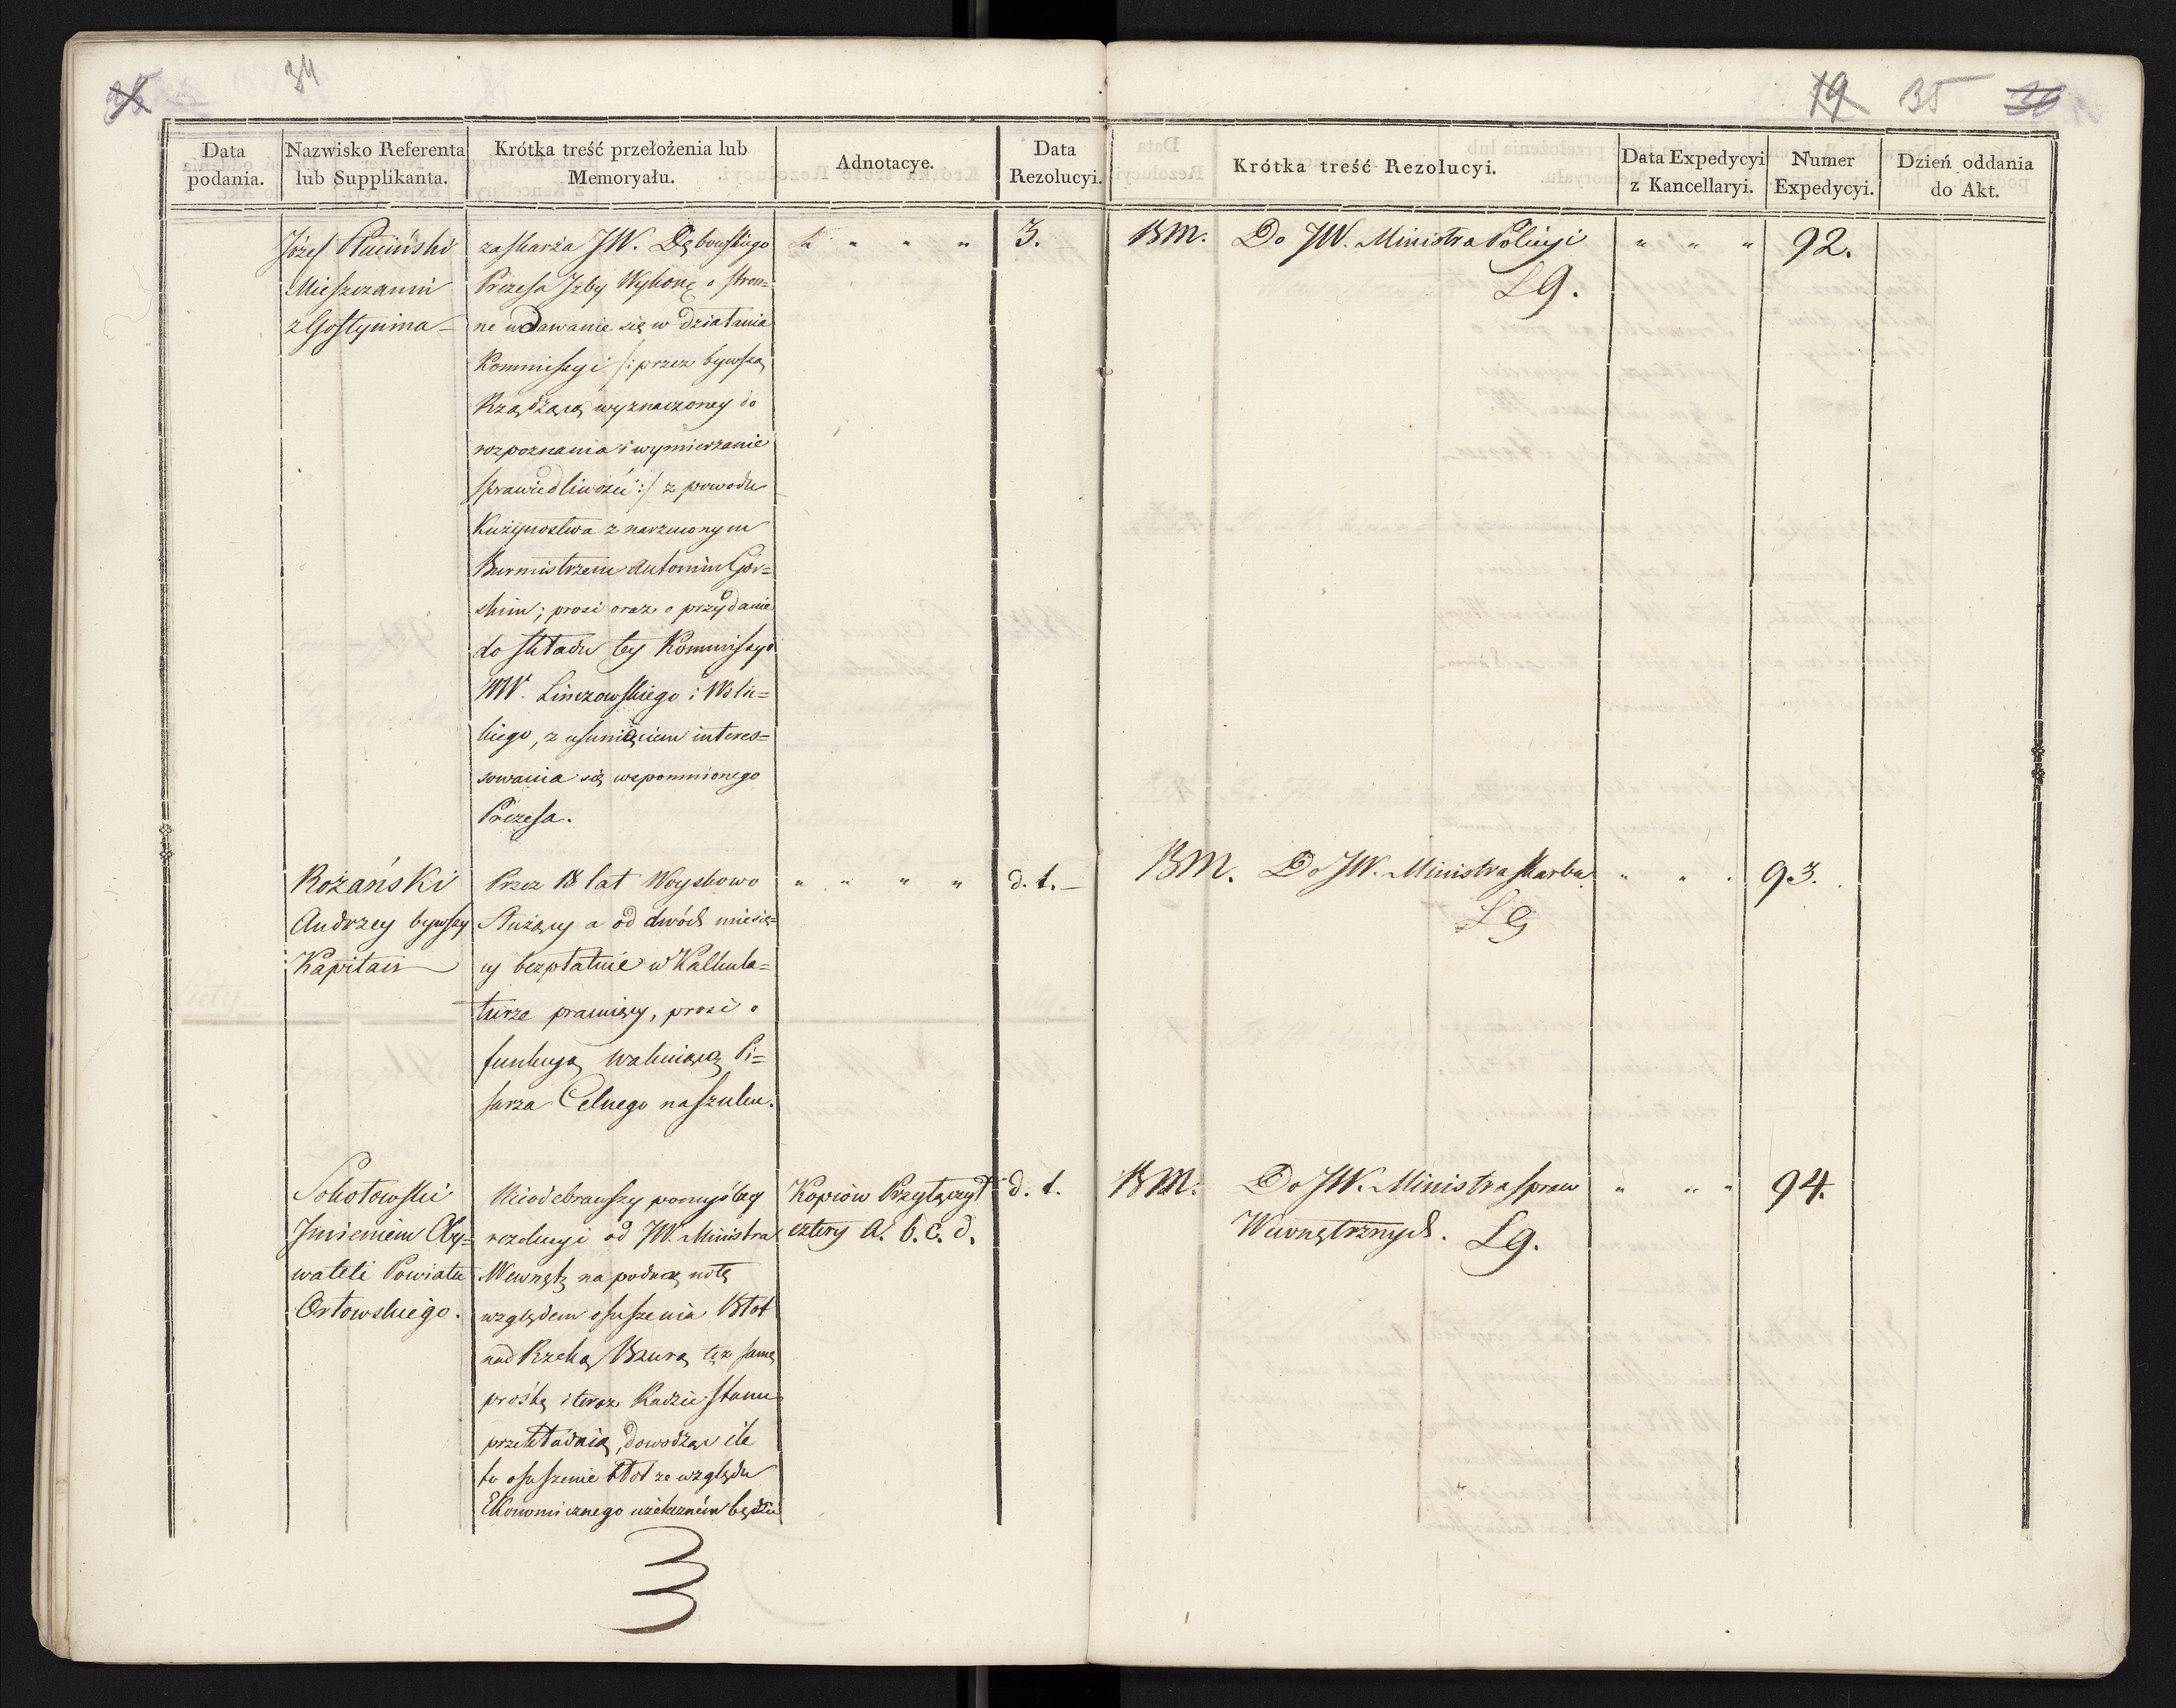 34
19 35 36
Data podania.
Nazwisko Referenta lub Supplikanta.
Krótka treść przełożenia lub Memoryału.
Adnotacye.
Data Rezolucyi.
Krótka treść Rezolucyi.
Data Expedycyi z Kancellaryi.
Numer Expedycyi.
Dzień oddania do Akt.
Józef
Mieszczanin
z Gostynina
zaskarża JW. Dębowskiego
Prezesa Izby Wykonę o stron=
ne wdawanie się w działania
Kommissyi /: przez bywszą
Rządzącą wyznaczoney do
rozpoznania i wymierzanie
sprawiedliwości :/ z powodu
Kuzynostwa z narzuconym
Burmistrzem Antonim Gór=
skim; prosi oraz o przydanie
do składu tey Kommissyi
WW. Linczowskiego i Wolic=
kiego, z usunięciem interes=
sowania się wspomnionego
Prezesa.
" " "
3.
BM. Do JW. Ministra Policyi
LG.
" " "
92.
Rożański
Andrzey bywszy
Kapitan
Przez 18 lat Woyskowo
Służący a od dwóch miesię=
cy bezpłatnie w Kalkula=
turze pracuiący, prosi o
funkcyą wakuiącą Pi=
sarza Celnego na szulcu.
" " " "
d. t. –
BM. Do JW. Ministra Skarbu
LG
" " "
93.
Sokołowski
Imieniem Oby=
wateli Powiatu
Orłowskiego.
Nieodebrawszy pomyślney
rezolucyi od JW. Ministra
Wewnętz na podaną notę
względem osuszenia Błot
nad Rzeką Bzurą też samę
prośbę i teraz Radzie Stanu
przekładaią, dowodząc ile
to osuszenie Błot ze względu
Ekonomicznego użytecznem będzie
Kopiow Przyłączył
cztery a. b. c. d.
d. t.
BM. Do JW. Ministra Spraw
Wewnętrznych. LG.
" " "
94.
3